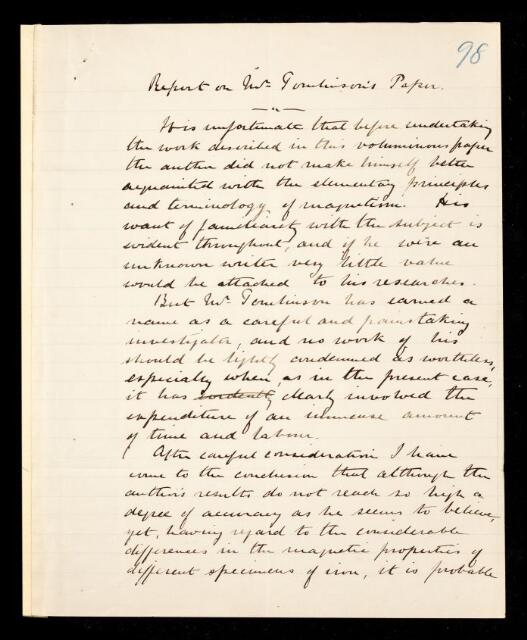 98
Report on Mr Tomlinson's Paper.
It is unfortunate that before undertaking
the work described in this voluminous paper
the author did not make himself better
acquainted with the elementary principles
and terminology of magnetism. His
want of familiarity with the subject is
evident throughout, and if he were an
unknown writer very little value
would be attached to his researches.
But Mr Tomlinson has earned a
name as a careful and painstaking
investigator, and no work of his
should be lightly condemned as worthless,
especially when, as in the present case,
it has evidently clearly involved the
expenditure of an immense amount
of time and labour.
After careful consideration I have
come to the conclusion that although the
author's results do not reach so high a
degree of accuracy as he seems to believe,
yet, having regard to the considerable
differences in the magnetic properties of
different specimens of iron, it is probable